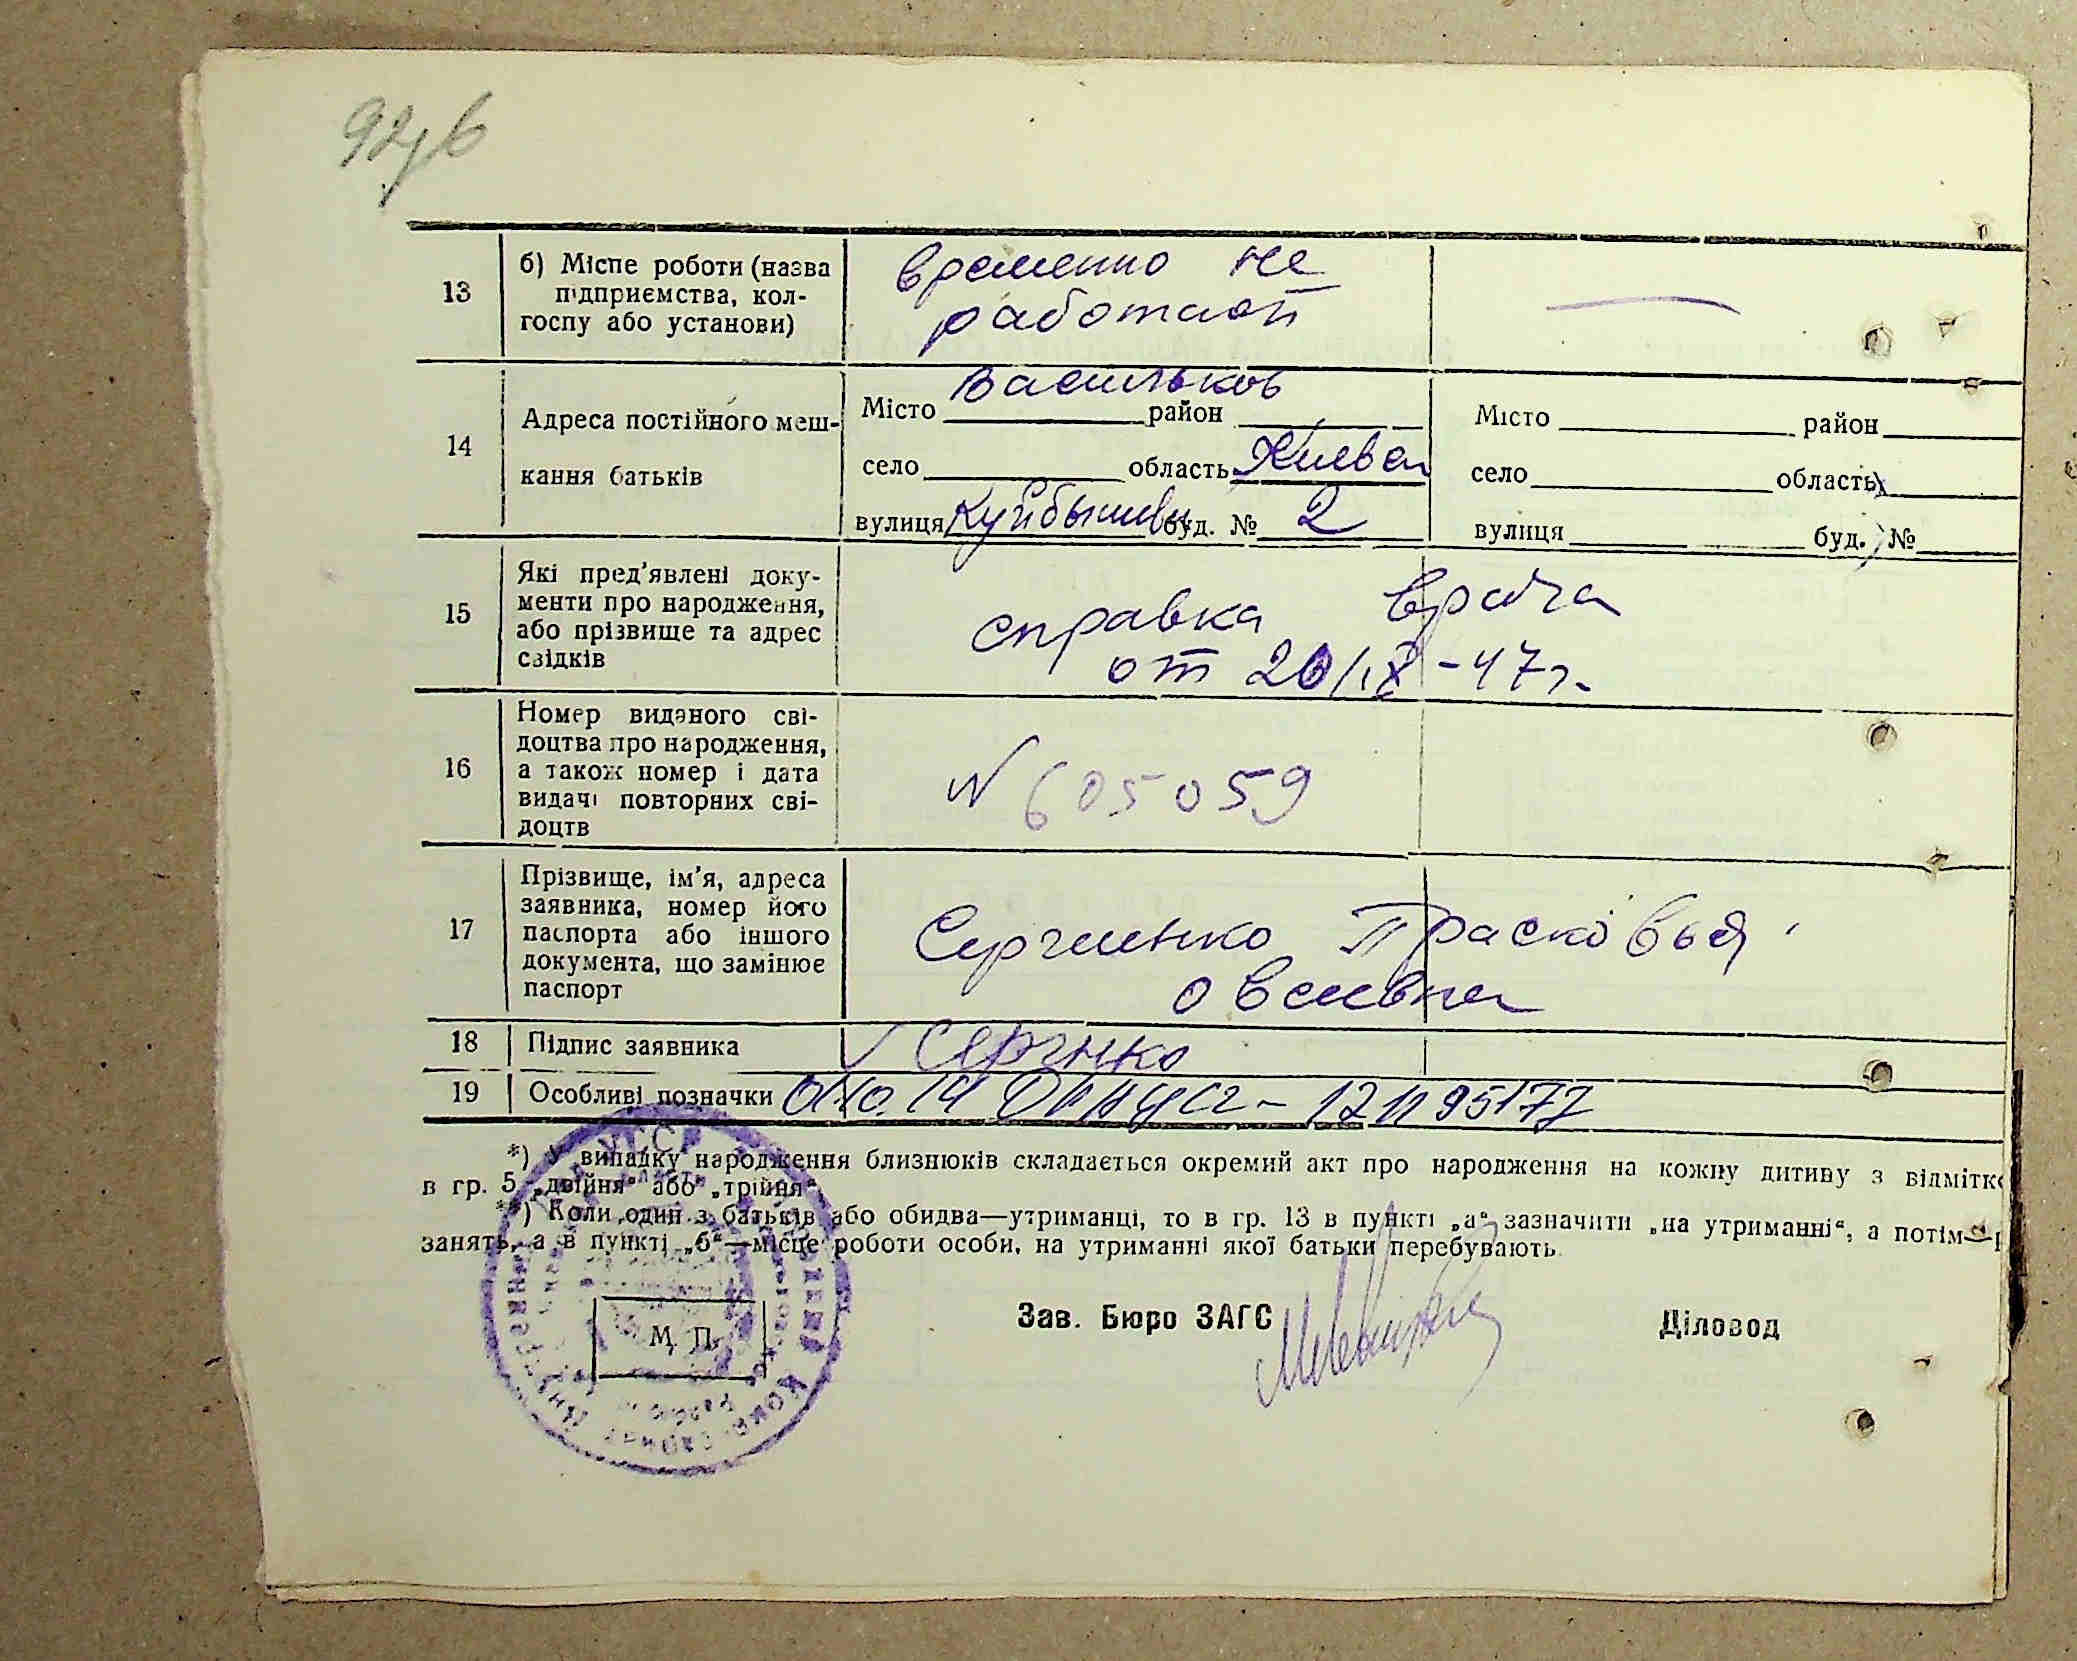 13
б) Місце роботи (назва
підприємства, кол-
госпу або установи)
временно не
работает
14
Адреса постійного меш-
кання батьків
Місто Васильков район
село область Киевск
вулиця Куйбышева буд. № 2
Місто район
село область
вулиця буд. №
15
Які пред'явлені доку-
менти про народження,
або прізвище та адрес
свідків
справка врача
от 20/IX-47г.
16
Номер виданого сві-
доцтва про народження,
а також номер і дата
видачі повторних сві-
доцтв
N 605059
17
Прізвище, ім'я, адреса
заявника, номер його
паспорта або іншого
документа, що замінює
паспорт
Сергиенко Прасковья
18
Підпис заявника
19
Особливі позначки
*) У випадку народження близнюків складається окремий акт про народження на кожну дитину з відмітко
в гр. 5 „двійня“ або „трійня“
**) Коли один з батьків або обидва—утриманці, то в гр. 13 в пункті „а“ зазначити „на утриманні“, а потім—
занять, а в пункті „б“—місце роботи особи, на утриманні якої батьки перебувають.
М. П.
Зав. Бюро ЗАГС
Діловод